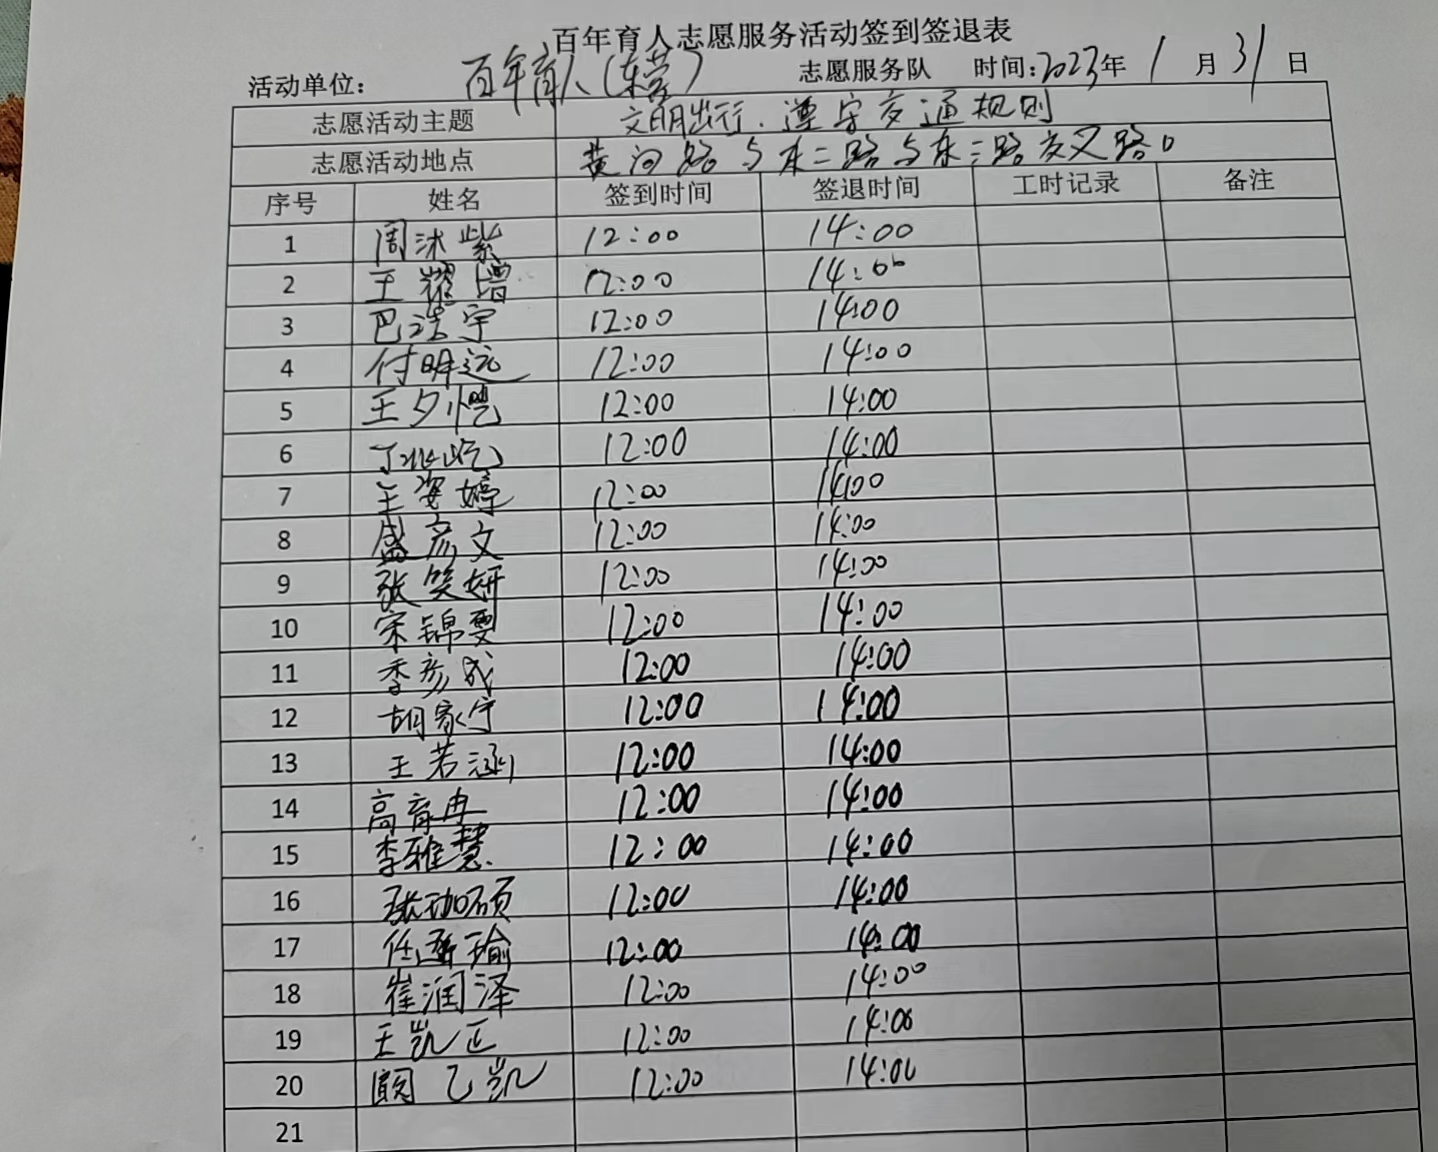 百年育人志愿服务活动签到签退表
活动单位: 百年育人(东营) 志愿服务队 时间:2023年 1 月 31 日
志愿活动主题 文明出行.遵守交通规则
志愿活动地点 黄河路与东二路与东三路交叉路口
序号 姓名 签到时间 签退时间 工时记录 备注
1 周沐紫 12:00 14:00
2 王耀增 12:00 14:00
3 巴浩宇 12:00 14:00
4 付明远 12:00 14:00
5 王夕恺 12:00 14:00
6 丁兆屹 12:00 14:00
7 王姿婷 12:00 14:00
8 盛彦文 12:00 14:00
9 张笑妍 12:00 14:00
10 宋锦雯 12:00 14:00
11 季彦成 12:00 14:00
12 胡家宁 12:00 14:00
13 王若涵 12:00 14:00
14 高育冉 12:00 14:00
15 李雅慧 12:00 14:00
16 张珈硕 12:00 14:00
17 任 瑜 12:00 14:00
18 崔润泽 12:00 14:00
19 王凯正 12:00 14:00
20 乙凯 12:00 14:00
21